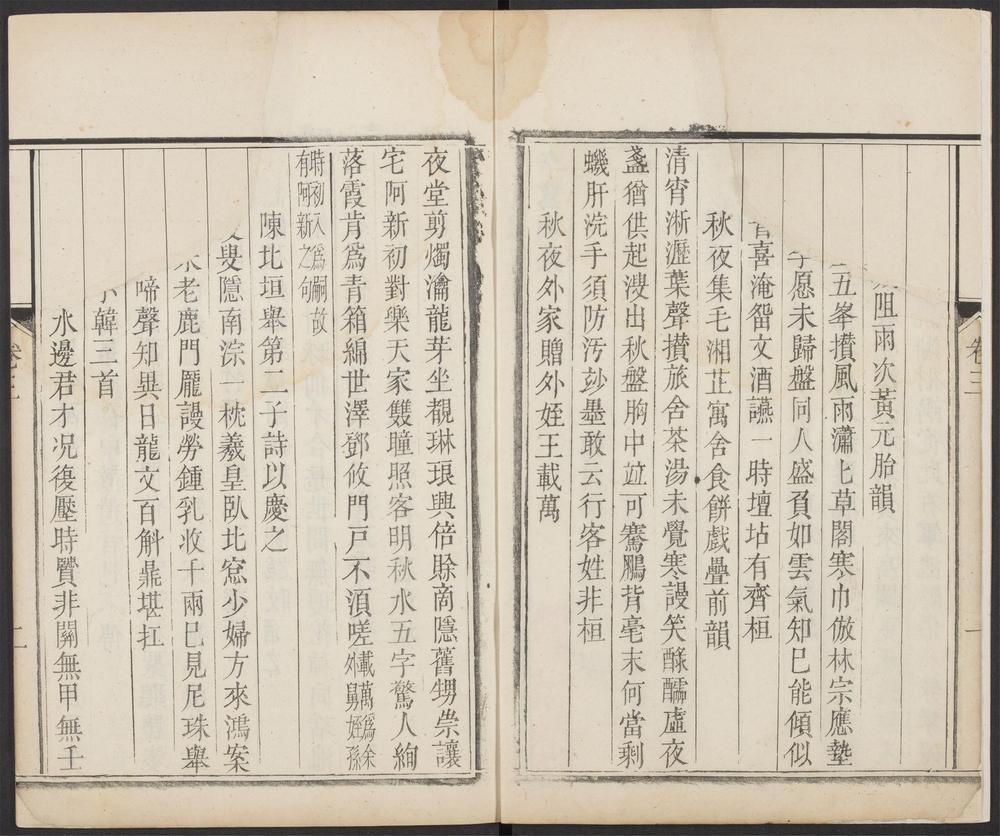 卷三
一
阻雨次黃元胎韻
五峯攢風雨瀟匕草閣寒巾倣林宗應墊
愿未歸盤同人盛負如雲氣知巳能傾似
喜淹畱文酒讌一時壇坫有齊桓
秋夜集毛湘芷寓舍食餅戲疊前韻
清宵淅瀝葉聲攢旅舍茶湯未覺寒謾笑酴醹虛夜
盞猶供起溲出秋盤胸中竝可騫鵬背毫末何當剩
蟣肝浣手須防汚玅墨敢云行客姓非桓
秋夜外家贈外姪王載萬
夜堂剪燭瀹龍芽坐覩琳琅興倍賒商隱舊甥祟讓
宅阿新初對樂天家雙瞳照客明秋水五字驚人絢
落霞肯爲青箱綿世澤鄧攸門戸不湏嗟載萬爲余外舅姪孫
時初入爲嗣故有阿新之句
陳北垣舉第二子詩以慶之
叟隱南淙一枕羲皇臥北窓少婦方來鴻案
老鹿門龎謾勞鍾乳收千兩巳見尼珠舉
啼聲知異日龍文百斛鼎堪扛
韓三首
水邊君才况復壓時賢非關無甲無壬
卷三
二